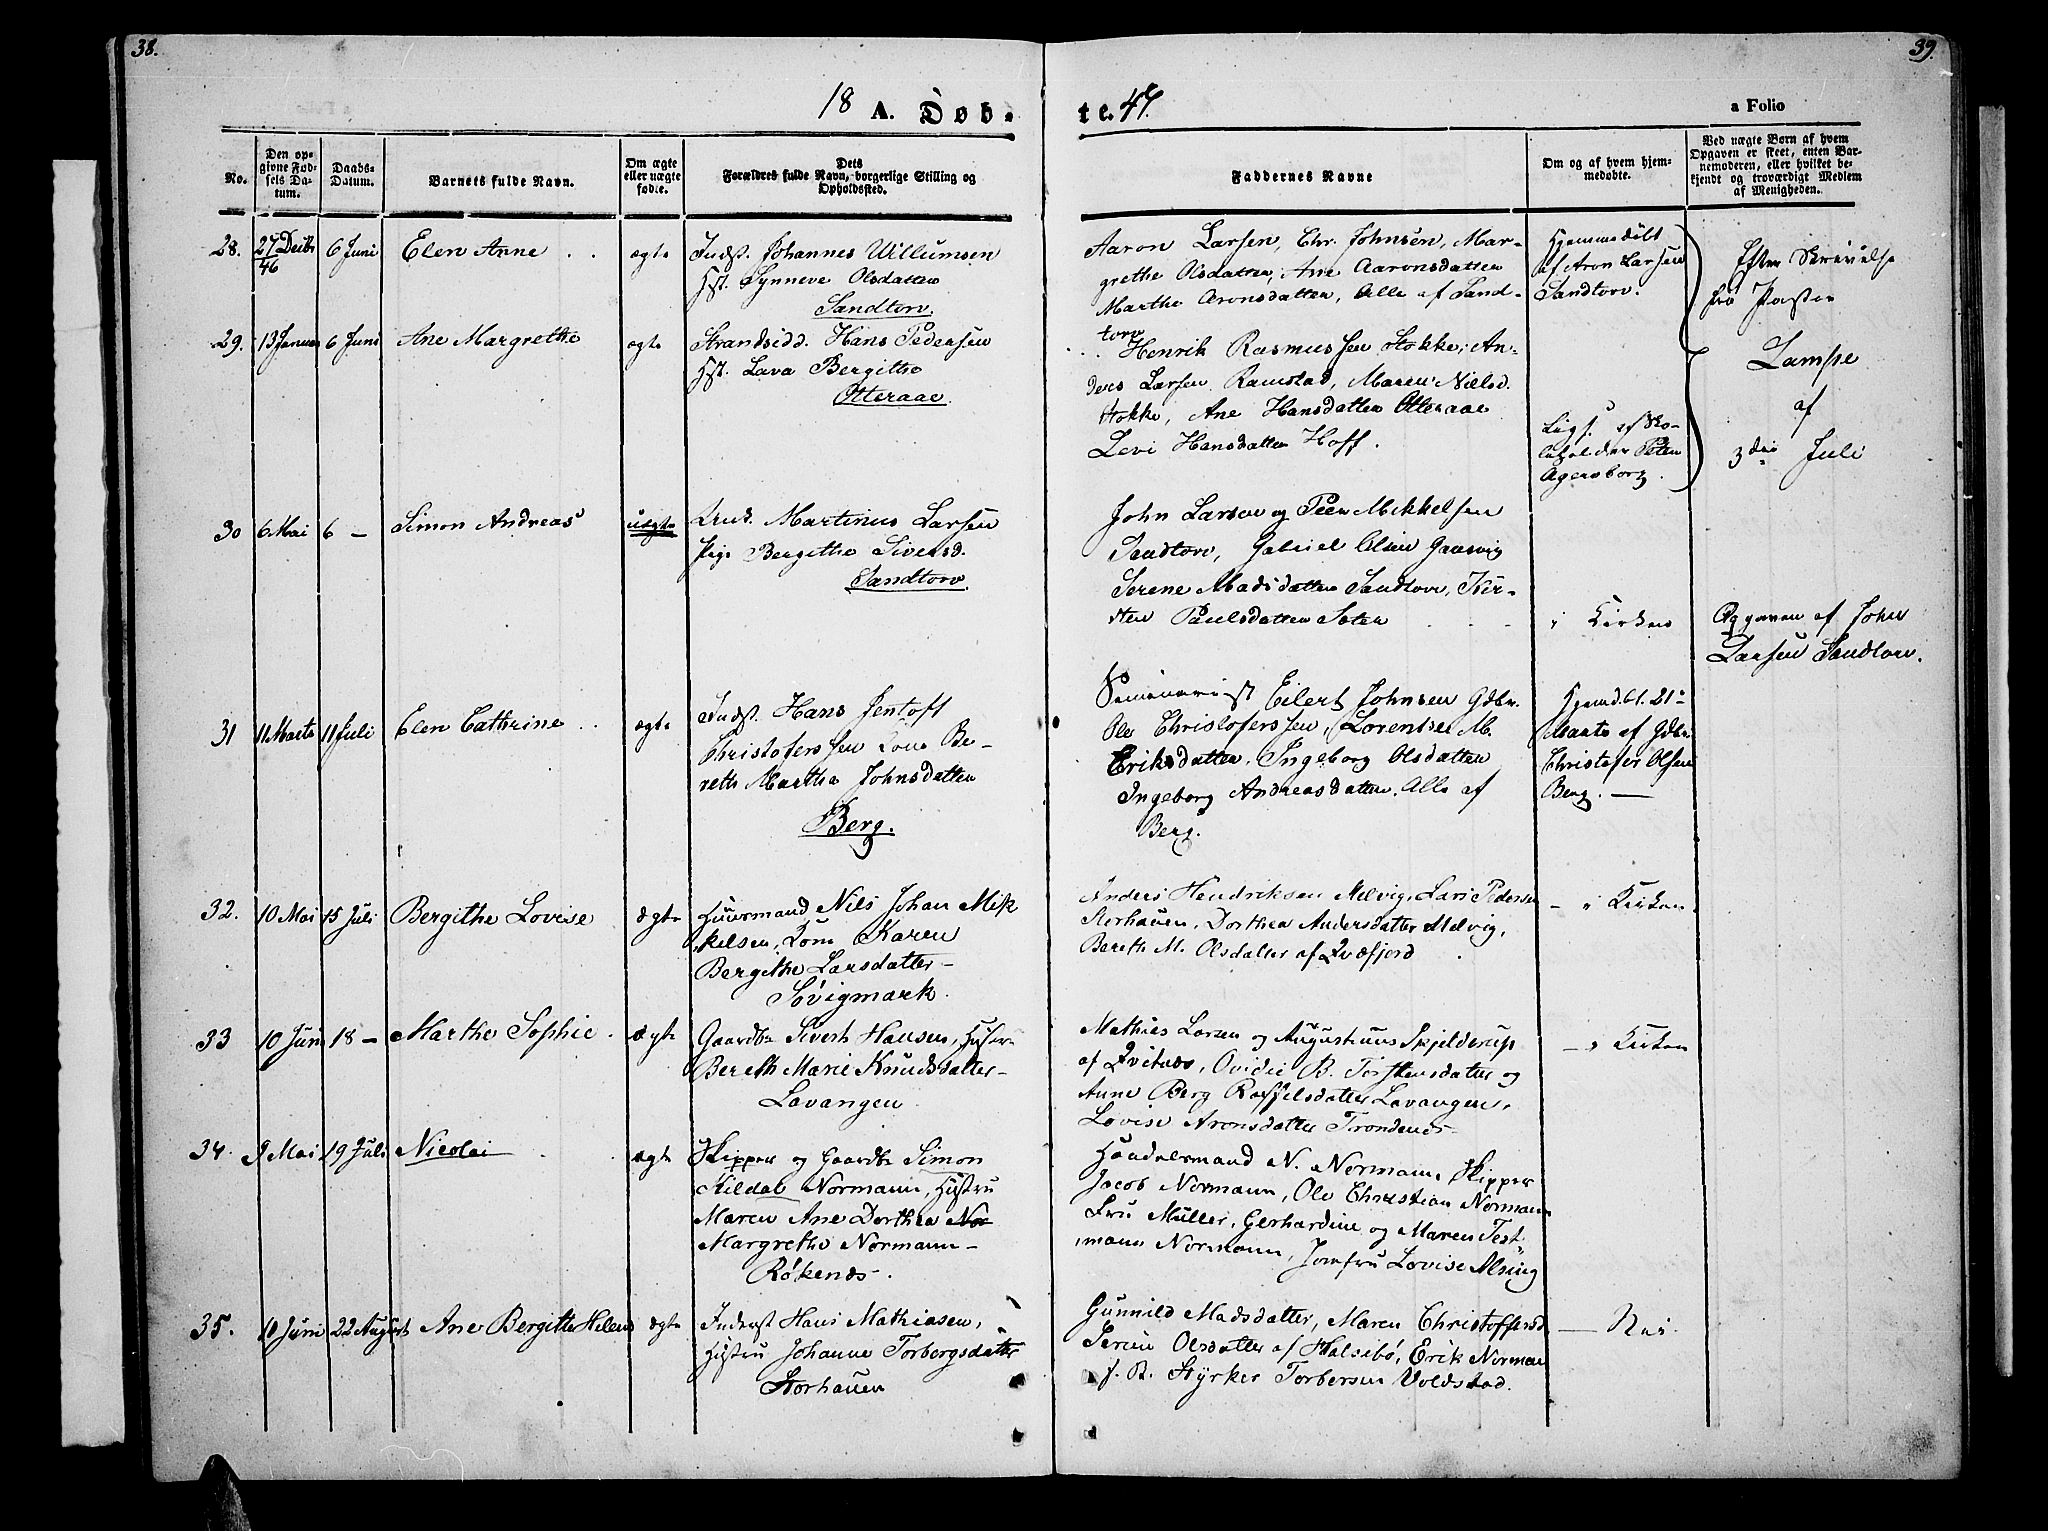 38.
39.
18 A. Døb-
te. 47.
a Folio
No.
Den op-
givne Fød-
sels Da-
tum.
Daabs-
Datum.
Barnets fulde Navn.
Om ægte
eller uægte
fød.e.
Dets
Forældres fulde Navn, borgerlige Stilling og
Opholdssted.
Faddernes Navne
Om og af hvem hjem-
medøbte.
Ved uægte Børn af hvem
Opgaven er skeet, enten Bar-
nemoderen, eller hvilket be-
kjendt og troværdigt Medlem
af Menigheden.
28. 27 Decbr 46 6 Juni Elen Anne ægte
Indst. Johannes Willumsen
Hst. Synneve Olsdatter
Sandtorv.
Aaron Larsen, Chr. Johnsen, Mar-
grethe Olsdatter, Ane Aaronsdatter
Marthe Aronsdatter, Alle af Sand-
torv
Hjemmedøbt
af Aron Larsen
Sandtorv.
Efter Skrivelse
fra Pastor
Lampe
af
3die Juli
29. 13 Januar 6 Juni Ane Margrethe ægte
Strandsidd. Hans Pedersen
Hst. Lava Bergithe
Otteraae.
Henrik Rasmussen Stokke, An-
ders Larsen Ramstad, Maren Nielsd.
Stokke, Ane Hansdatter Otteraae
Levi Hansdatter Hoff.
Ligs. af Sko-
leholder Peter
Agersborg.
30 6 Mai 6 — Simon Andreas uægte
Martinus Larsen
Pige Bergithe Siversd.
Sandtorv
John Larsen og Peer Mikkelsen
Sandtorv, Gabriel Olsen Gausvig
Serene Madsdatter Sandtorv, Kir-
sten Paulsdatter
i Kirken
Opgaven af John
Larsen Sandtorv.
31 11 Marts 11 Juli Elen Cathrine ægte
Indst. Hans Jentoft
Christofersen Kone Be-
reth Martha Johnsdatter
Berg.
Seminarist Eilert Johnsen Gdbr.
Ole Christofersen, Lorentse M.
Eriksdatter, Ingeborg Olsdatter
Ingeborg Andreasdatter. Alle af
Berg.
Hjemdbt. 21
Marts af Gdbr.
Christofer Olsen
Berg. —
32. 10 Mai 15 Juli Bergithe Lovise ægte
Huusmand Nils Johan Mik
kelsen, Kone Karen
Bergithe Larsdatter —
Søvigmark.
Anders Hendriksen Melvig, Lars Pedersen
Storhauen, Dorthea Andersdatter Melvig,
Bereth M. Olsdatter af Qvæfjord
— i Kirken
33 10 Juni 18 — Marthe Sophie. ægte
Gaardbr Sivert Hansen, Hustru
Bereth Marie Knudsdatter —
Lavangen
Mathias Larsen og Augustinus Skjelderup
af Qvitnes, Ovidie B. Torstensdatter og
Anne Berg Roffelsdatter Lavangen,
Lovise Aronsdatter Trondenes
— i Kirken
34. 9 Mai 19 Juli Nicolai ægte
Skipper og Gaardbr Simon
Kildal Normann, Hustru
Maren Ane Dorthea Nor
Margrethe Normann —
Røkenes.
Handelsmand N. Normann, Skipper
Jacob Normann, Ole Christian Normann
Fru Müller, Gerhardine og Maren Test
mann Normann, Jomfru Lovise Alsing
35. 11 Juni 22 August Ane Bergitte Helene ægte
Inderst Hans Mathiasen,
Hustru Johanne Torbergsdatter
Storhauen
Gunnild Madsdatter, Maren Christoffersd.
Seriue Olsdatter af Halsebø, Erik Norman
f. B. Styrker Torbersen Voldstad.
— Nei.